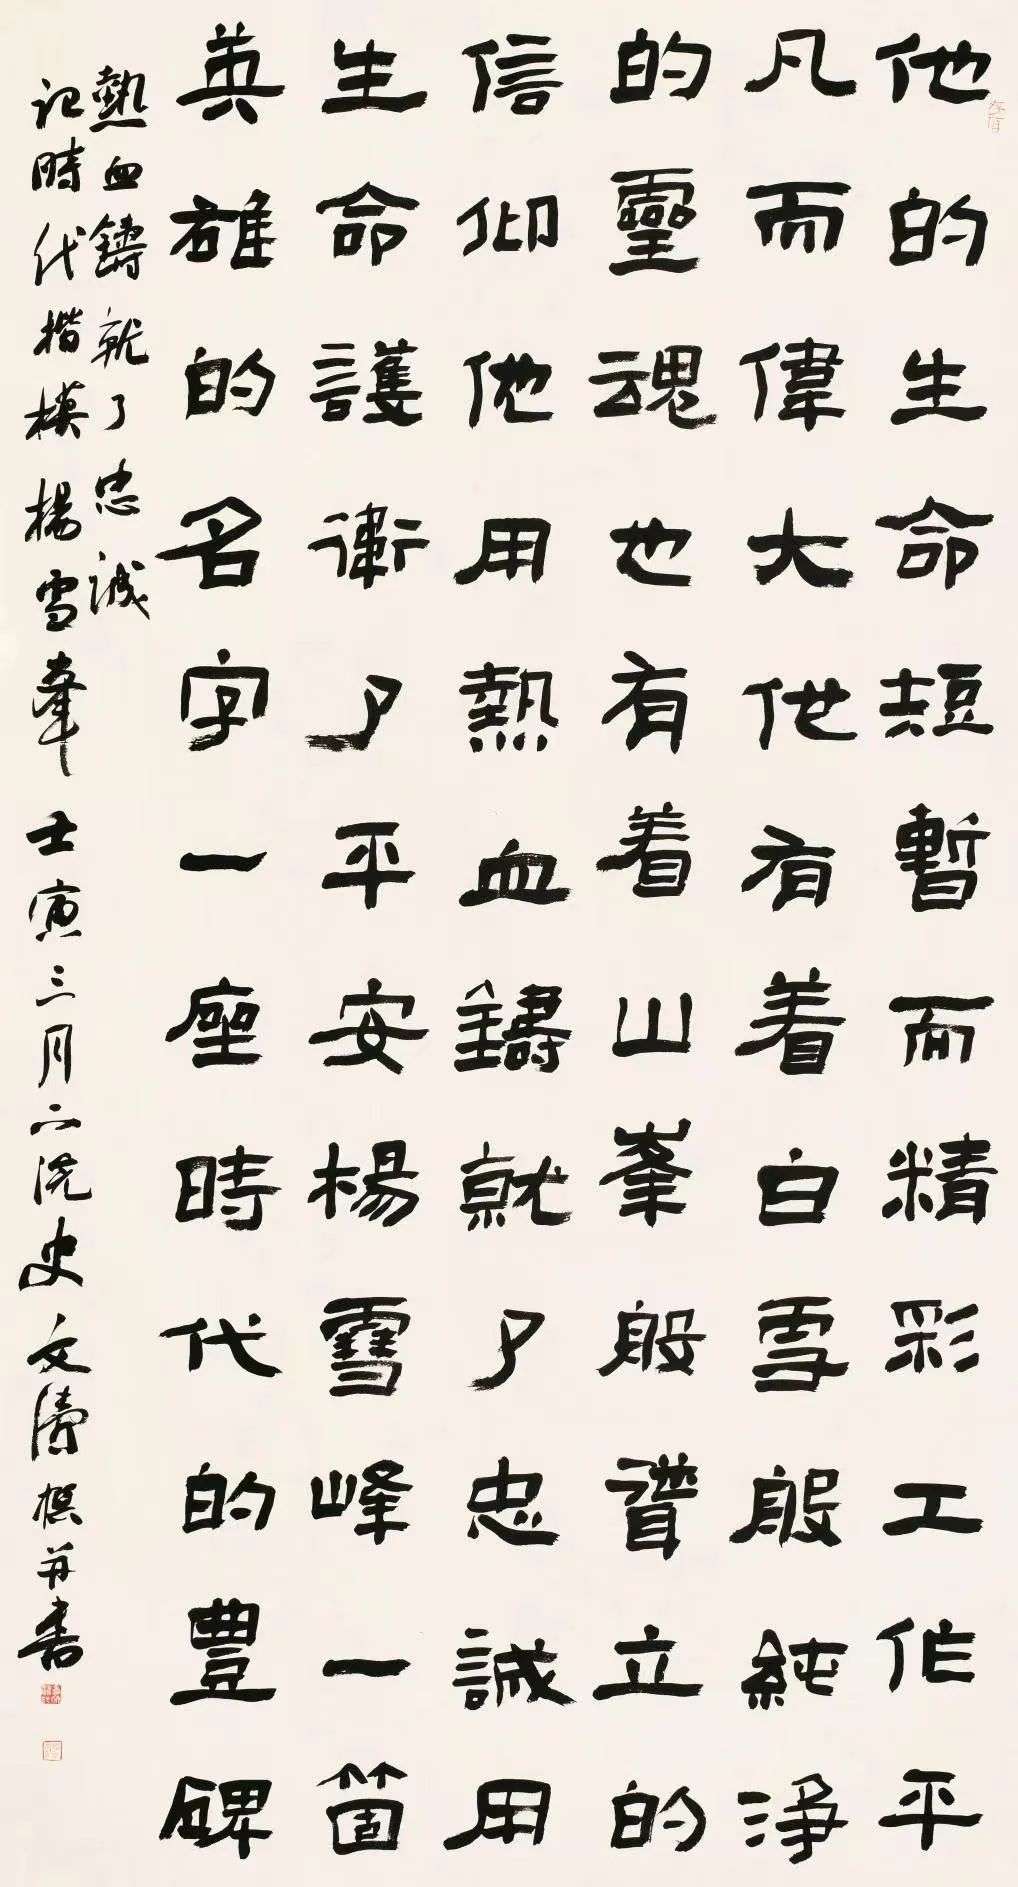 他的生命短暫而精彩工作平
凡而偉大他有着白雪般純淨
的靈魂也有着山峯般聳立的
信仰他用熱血鑄就了忠誠用
生命護衛了平安楊雪峰一箇
英雄的名字一座時代的豐碑
熱血鑄就了忠誠
記時代楷模楊雪峯 壬寅三月二浣史文濤撰并書